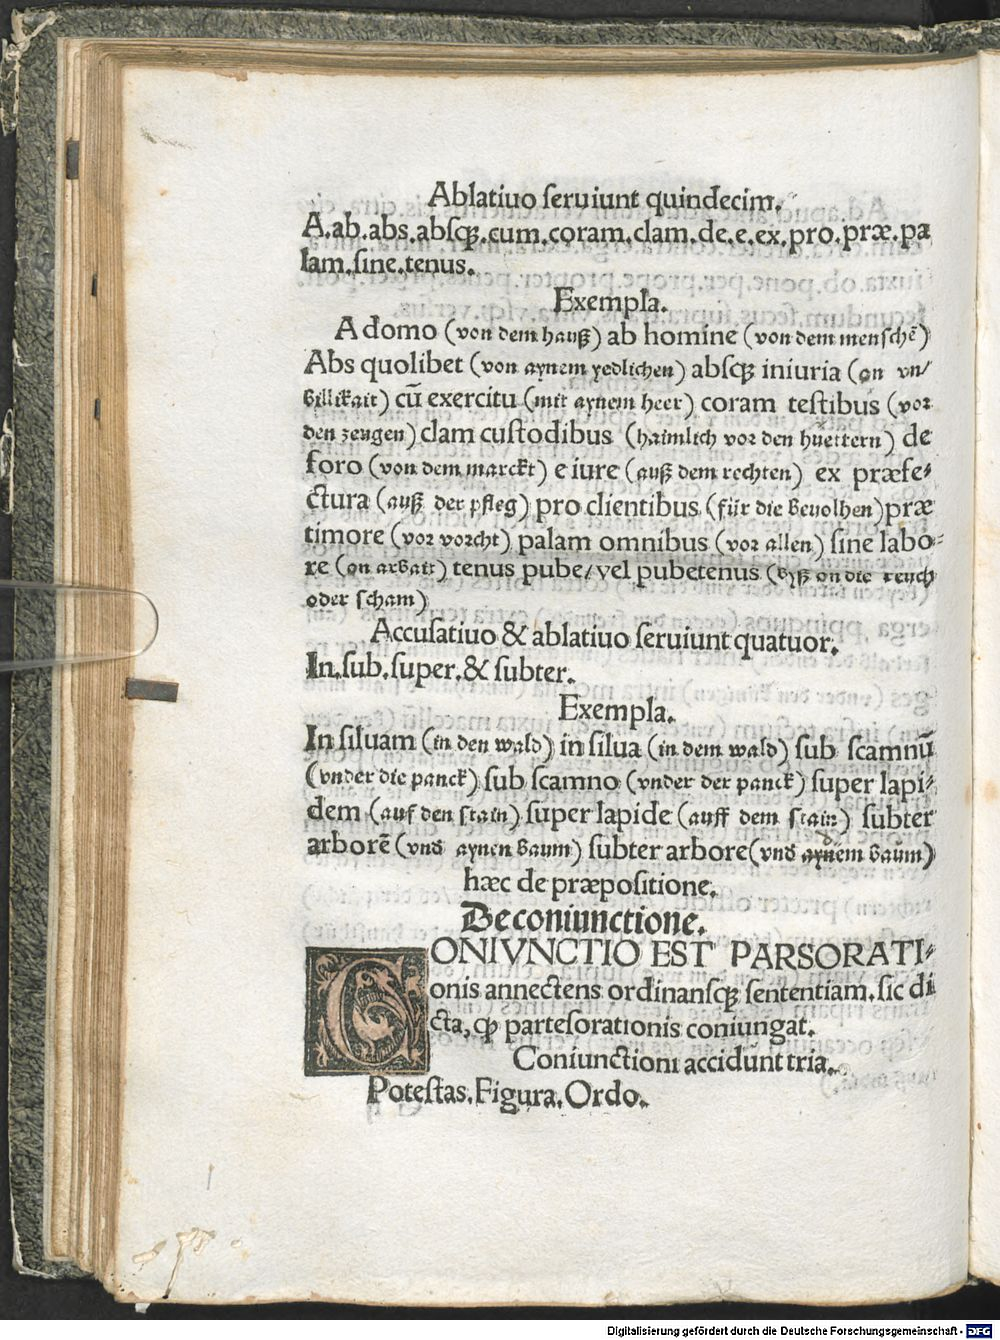 Ablatiuo seruiunt quindecim.
A.ab.abs.absqꝫ.cum.coram.clam.de.e.ex.pro.præ.pa
lam.sine.tenus.
Exempla.
A domo (von dem hauß) ab homine (von dem menschē)
Abs quolibet (von aynem yedlichen) absqꝫ iniuria (on vn/
billikait) cū exercitu (mit aynem heer) coram testibus (vor
den zeugen) clam custodibus (haimlich vor den huettern) de
foro (von dem marckt) e iure (auß dem rechten) ex præfe⸗
ctura (auß der pfleg) pro clientibus (für die beuolhen) præ
timore (vor vorcht) palam omnibus (vor allen) sine labo⸗
re (on arbait) tenus pube/vel pubetenus (byß on die reuch
oder scham)
Accusatiuo & ablatiuo seruiunt quatuor.
In.sub.super.& subter.
Exempla.
In siluam (in den wald) in silua (in dem wald) sub scamnū
(vnder die panck) sub scamno (vnder der panck) super lapi⸗
dem (auf den stain) super lapide (auff dem stain) subter
arborē (vnd aynen baum) subter arbore (vnd aynem baum)
hæc de præpositione.
De coniunctione.
CONIVNCTIO EST PARSORATI⸗
onis annectens ordinansqꝫ sententiam.sic di
cta, ꝙ partesorationis coniungat.
Coniunctioni accidunt tria.
Potestas.Figura.Ordo.
Digitalisierung gefördert durch die Deutsche Forschungsgemeinschaft - DFG